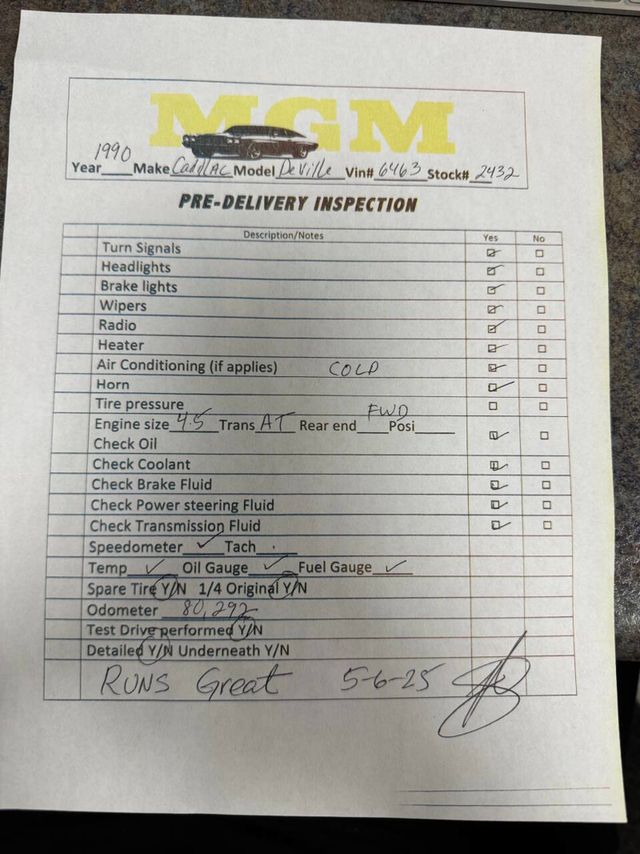 MGM
Year 1990 Make Cadillac Model DeVille Vin# 6463 Stock# 2432
PRE-DELIVERY INSPECTION
Description/Notes Yes No
Turn Signals
Headlights
Brake lights
Wipers
Radio
Heater
Air Conditioning (if applies) COLD
Horn
Tire pressure
Engine size 4.5 Trans AT Rear end FWD Posi
Check Oil
Check Coolant
Check Brake Fluid
Check Power steering Fluid
Check Transmission Fluid
Speedometer Tach
Temp Oil Gauge Fuel Gauge
Spare Tire Y/N 1/4 Original Y/N
Odometer 80,292
Test Drive performed Y/N
Detailed Y/N Underneath Y/N
RUNS Great 5-6-25